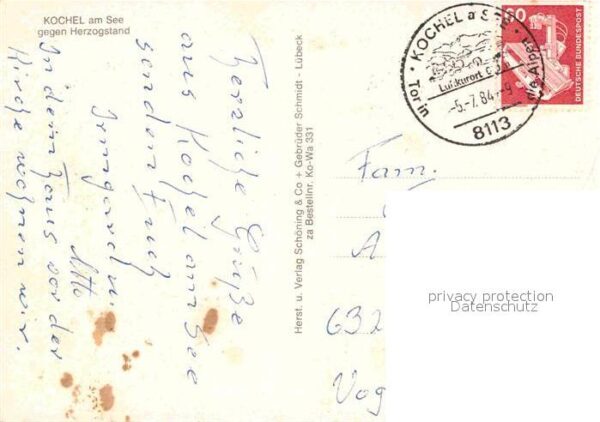 KOCHEL am See
gegen Herzogstand
Herzliche Grüße
aus Kochel am See
senden Euch
Irmgard u.
Otto
In dem Haus vor der
Kirche wohnen wir.
Herst. u. Verlag Schöning & Co + Gebrüder Schmidt - Lübeck
za Bestellnr. Ko-Wa 331
KOCHEL a. See
Luftkurort
Tor in die Alpen
-5.-7.84.-9
8113
60
DEUTSCHE BUNDESPOST
Fam.
A
632
Vog
privacy protection
Datenschutz